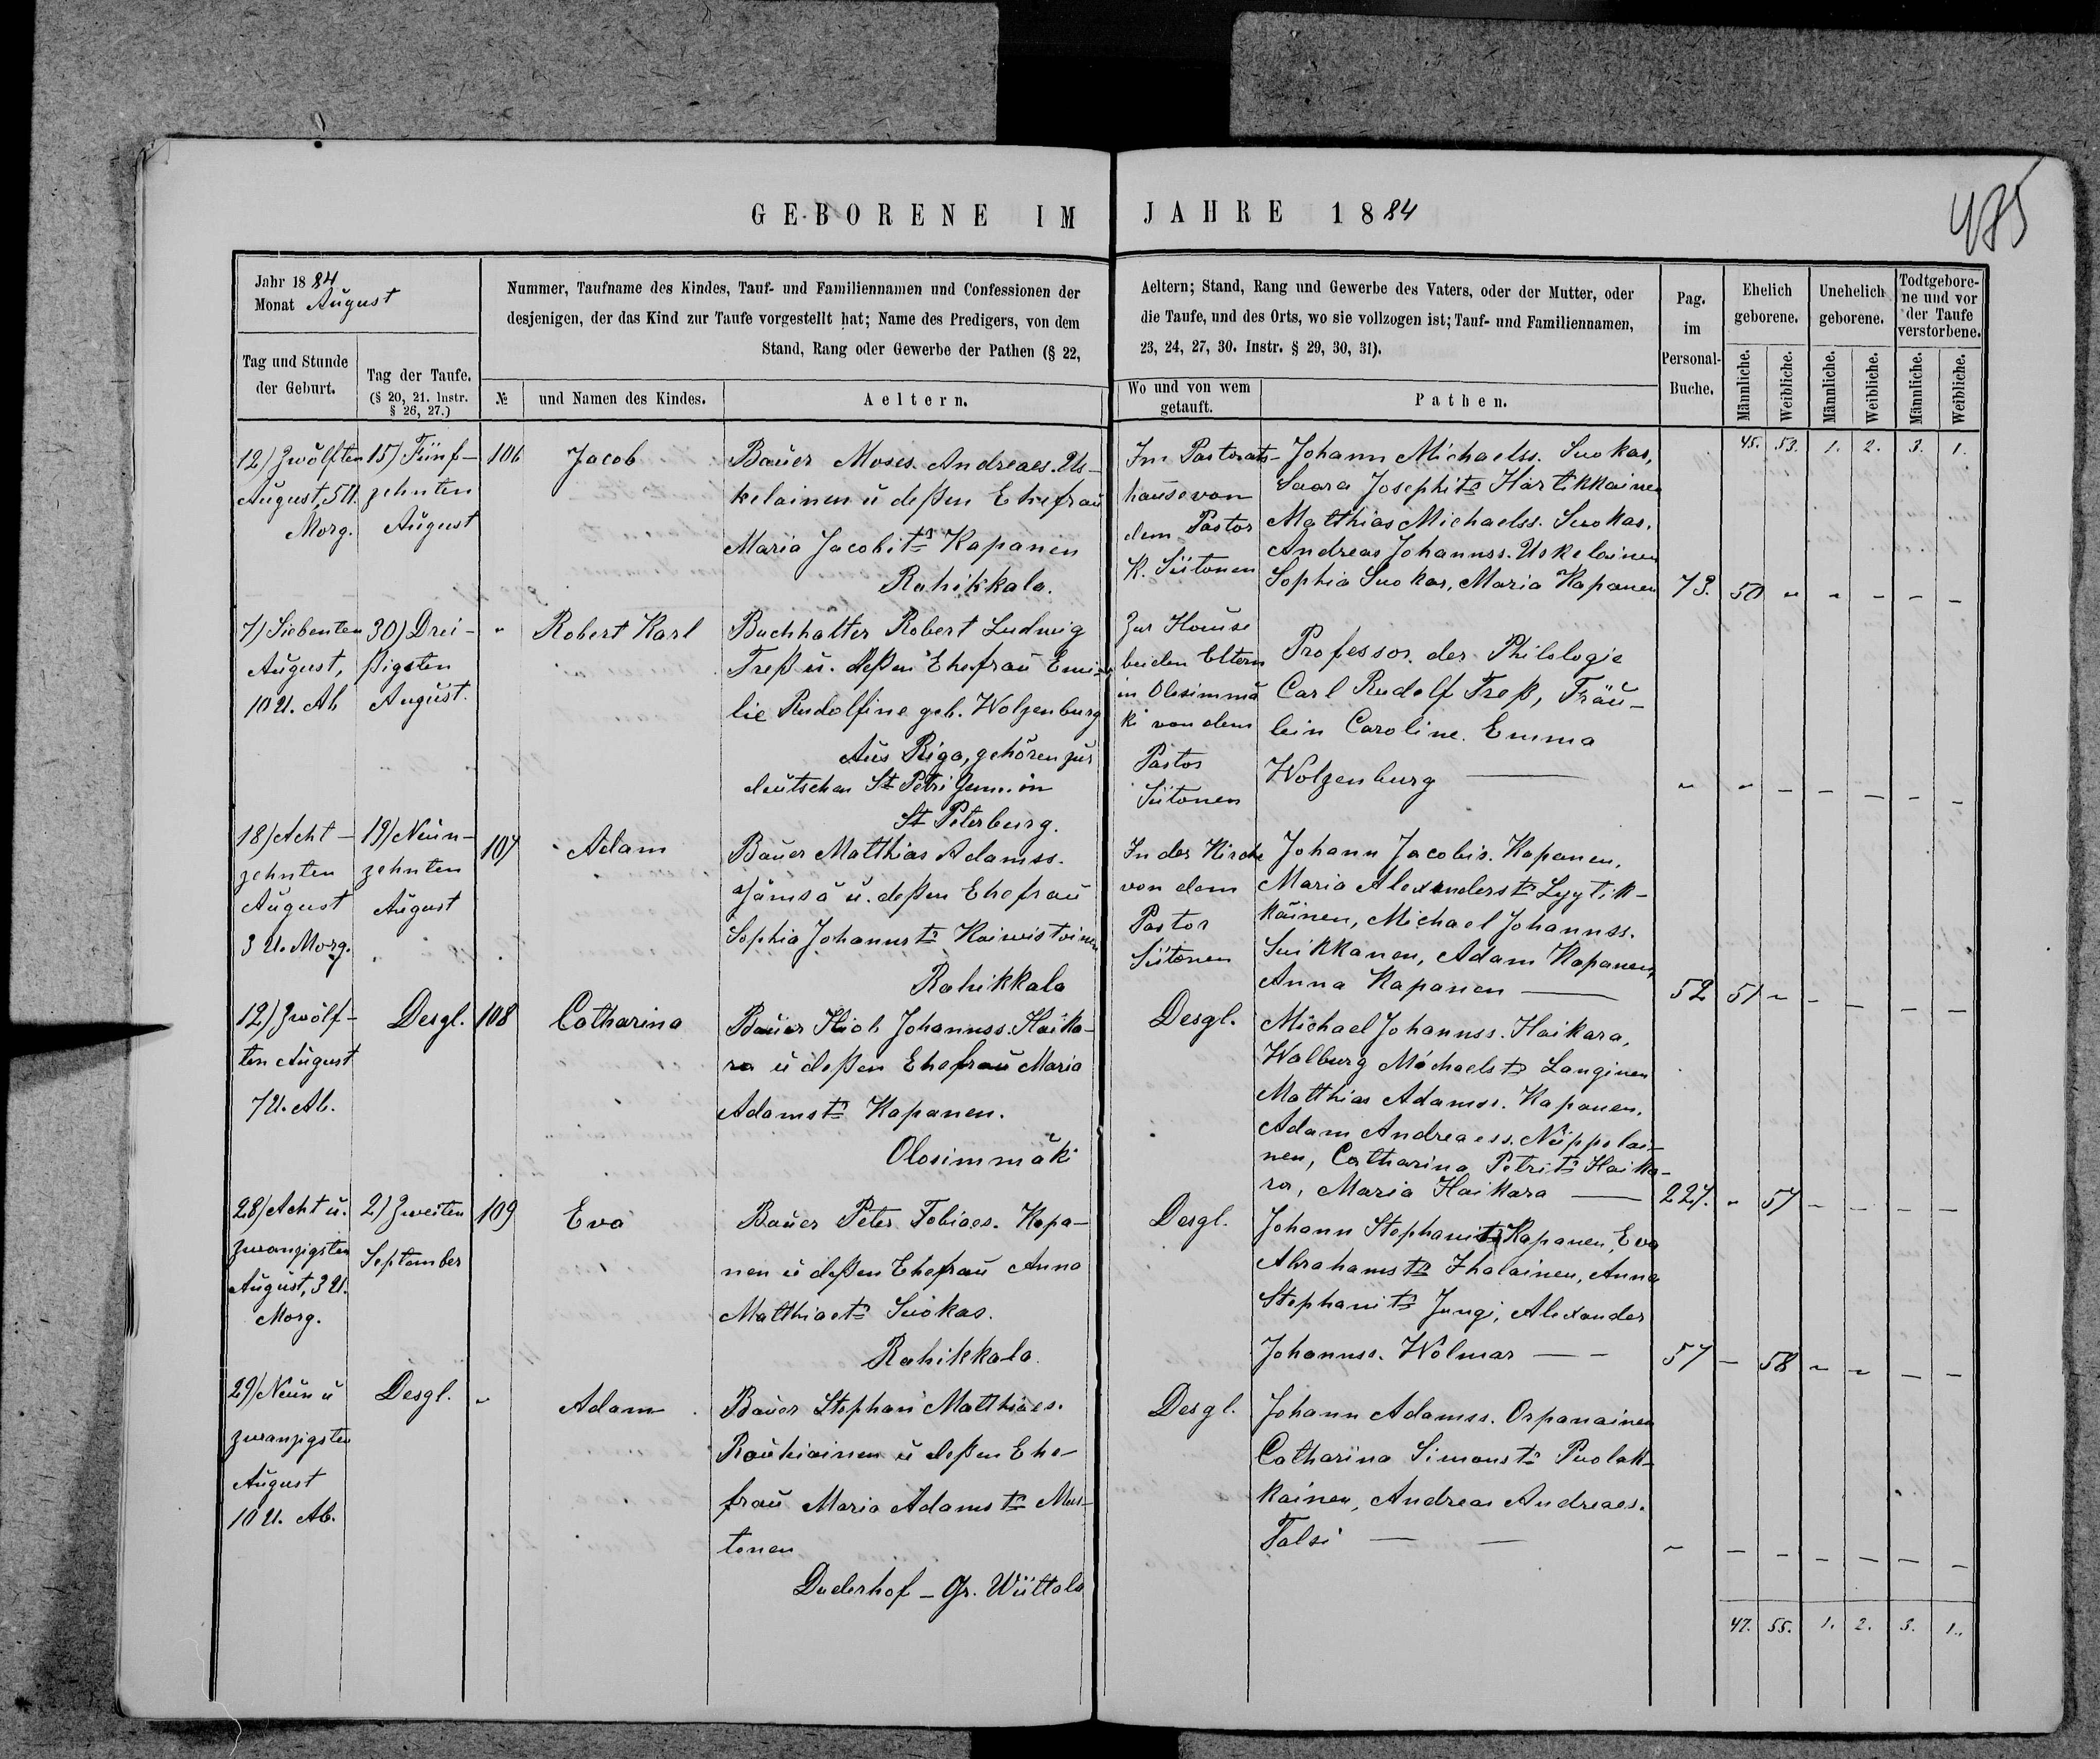 GEBORENE IM JAHRE 1884
485
Jahr 1884
Monat August
Nummer, Taufname des Kindes, Tauf- und Familiennamen und Confessionen der
desjenigen, der das Kind zur Taufe vorgestellt hat; Name des Predigers, von dem
Stand, Rang oder Gewerbe der Pathen (§ 22,
Aeltern; Stand, Rang und Gewerbe des Vaters, oder der Mutter, oder
die Taufe, und des Orts, wo sie vollzogen ist; Tauf- und Familiennamen,
23, 24, 27, 30. Instr. § 29, 30, 31).
Pag.
im
Personal-
Buche.
Ehelich
geborene.
Unehelich
geborene.
Todtgebore-
ne und vor
der Taufe
verstorbene.
Tag und Stunde
der Geburt.
Tag der Taufe.
(§ 20, 21. Instr.
§ 26, 27.)
№
und Namen des Kindes.
Aeltern.
Wo und von wem
getauft.
Pathen.
Männliche.
Weibliche.
Männliche.
Weibliche.
Männliche.
Weibliche.
45. 53. 1. 2. 3. 1.
12) Zwölften
August, 5 U.
Morg.
15) Fünf-
zehnten
August
106
Jacob
Bauer Moses Andreaes. Us-
kelainen u deßen Ehefrau
Maria Jacobitr Kapanen
Rahikkala.
Im Pastorats-
hause von
dem Pastor
K. Siitonen
Johann Michaelss. Suokas,
Saara Josephitr Härtikkainen
Matthias Michaelss. Suokas,
Andreas Johannss. Uskelainen
Sophia Suokas, Maria Kapanen
73. 50 " " - - -
7) Siebenten
August,
10 U. Ab
30) Drei-
ßigsten
August.
"
Robert Karl
Buchhalter Robert Ludwig
Treß u. deßen Ehefrau Emi-
lie Rudolfine geb. Wolzenburg
Aus Riga, gehören zur
deutschen St Petri Gem. in
St Peterburg.
Zur Hause
bei den Eltern
in Olosimmä
ki von dem
Pastor
Siitonen
Professor der Philologie
Carl Rudolf Treß, Fräu-
lein Caroline Emma
Wolzenburg —
" " - - - - -
18) Acht-
zehnten
August
3 U. Morg.
19) Neun-
zehnten
August
107
Adam
Bauer Matthias Adamss.
Jämsä u. deßen Ehefrau
Sophia Johannstr Koiwistoinen
Rahikkala
In der Kirche
von dem
Pastor
Siitonen
Johann Jacobis. Kapanen,
Maria Alexanderstr Lyytik-
käinen, Michael Johannss.
Suikkanen, Adam Kapanen,
Anna Kapanen —
52 51 " - - - -
12) Zwölf-
ten August
7 U. Ab.
Desgl.
108
Catharina
Bauer Hiob Johannss. Haika-
ra u deßen Ehefrau Maria
Adamstr Kapanen.
Olosimmäki
Desgl.
Michael Johannss. Haikara,
Walburg Michaelstr Langinen
Matthias Adamss. Kapanen,
Adam Andreaess. Niippolai-
nen, Catharina Petritr Haika-
ra, Maria Haikara —
227. " 57 - - - -
28) Acht u.
zwanzigsten
August, 3 U.
Morg.
2) Zweiten
September
109
Eva
Bauer Peter Tobiaes. Kapa-
nen u deßen Ehefrau Anna
Matthiaetr Suokas.
Rahikkala.
Desgl.
Johann Stephanitr Kapanen, Eva
Abrahamstr Ihalainen, Anna
Stephanitr Jungi, Alexander
Johannss. Wolmar — —
57 - 58 " " - -
29) Neun u
zwanzigsten
August
10 U. Ab.
Desgl.
"
Adam
Bauer Stephan Matthiaes.
Rouhiainen u deßen Ehe-
frau Maria Adamstr Mus-
tonen
Duderhof - Gr. Wiittala
Desgl.
Johann Adamss. Orpanainen
Catharina Simonstr Puolak-
kainen, Andreas Andreaes.
Talsi — —
" - - - - - -
47. 55. 1. 2. 3. 1.